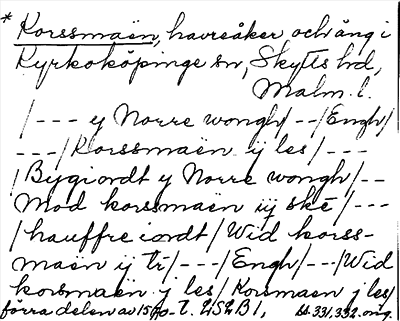 * Korssmaën, havreåker och äng i
Kyrkoköpinge sn, Skytts hd,
Malm. l.
/--- y Norre wongh/--/Engh/
---/Korssmaën ij les/---
/Bygiordt y Norre wongh/--
Mod korssmaën iij ske/---
/hauffre iordt/Wid korss-
maën ij tr/---/Engh/---/Wid
korsmaën ij les/Korsmaen j les/
förra delen av 15 LSLB1, bl. 331, 332. orig.